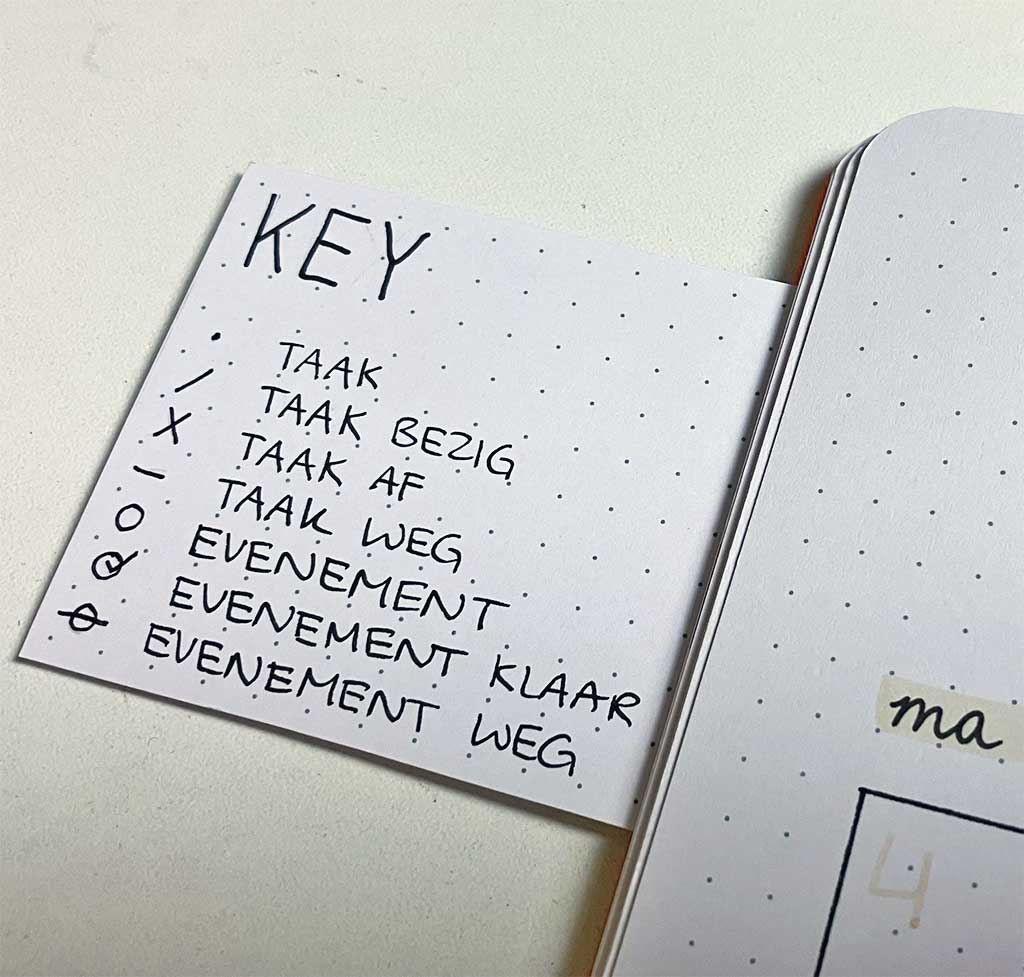 KEY
• TAAK
/ TAAK BEZIG
X TAAK AF
– TAAK WEG
○ EVENEMENT
EVENEMENT KLAAR
EVENEMENT WEG
ma
4